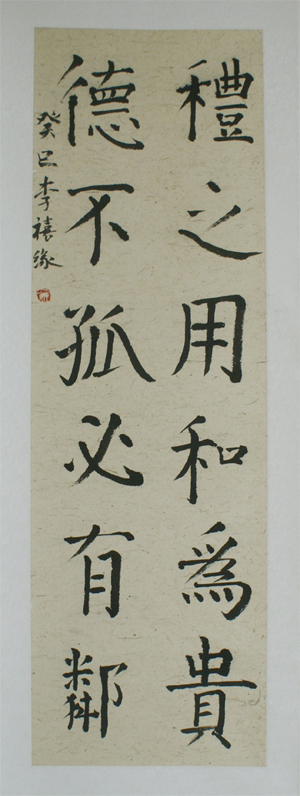 禮之用和為貴
德不孤必有鄰
癸巳李禧緣